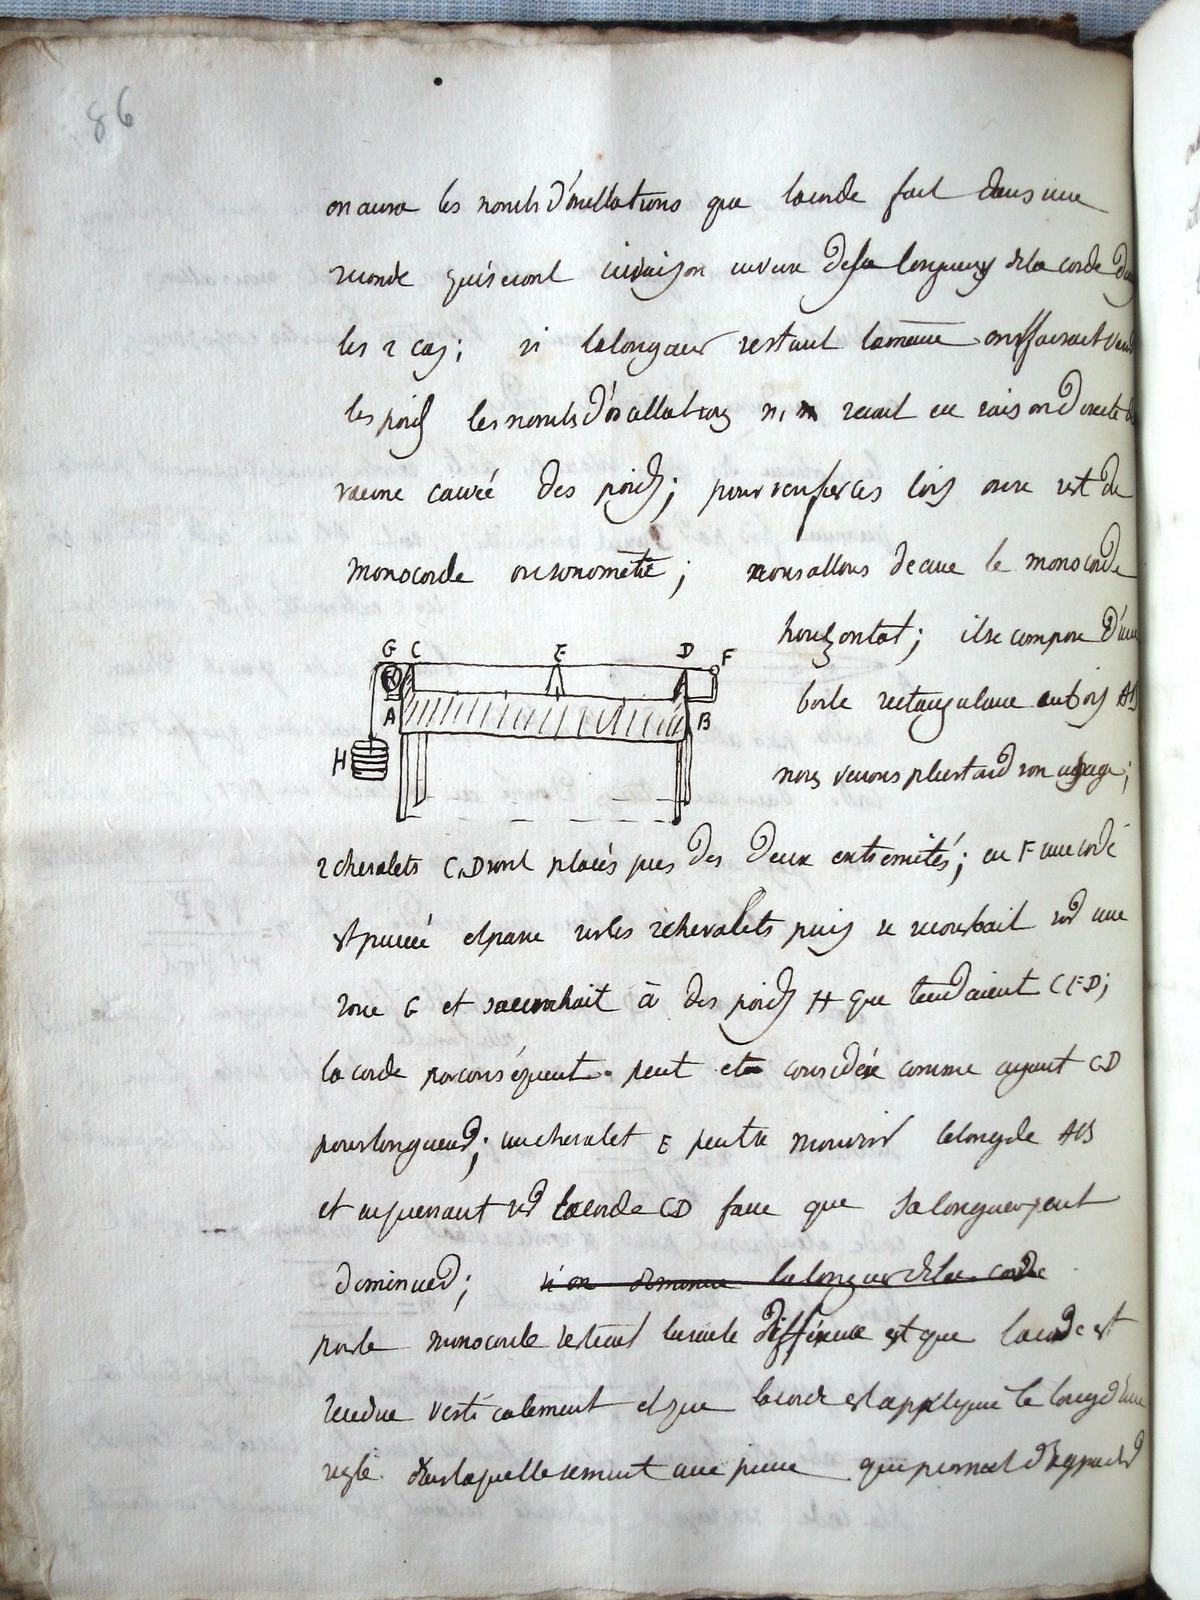 86
on aura les nombs d'oscillations que la corde fait dans une
seconde qui seront en raison inverse de sa longueur de la corde dans
les 2 cas; si la longueur restant la même on faisait varier
les poids les nombs d'oscillations n, n serait en raison directe de
racine carrée des poids; pour ces lois on se sert de
monocorde ou sonomètre; nous allons décrire le monocorde
horizontal; il se compose d'une
G C E D F
boite rectangulaire en bois AB
A B
nous verrons plus tard son usage;
H
2 chevalets C, D sont placés près des deux extrémités; en F une corde
est pincée et passe sur les 2 chevalets puis se recourbait sur une
roue G et s'accrochait à des poids H que tendaient CED;
la corde par conséquent peut etre considérée comme ayant CD
pour longueur; un chevalet E peut se mouvoir le long de AB
et en pressant sur la corde CD faire que sa longueur peut
diminuer; si on diminue la longueur de la corde
pour le monocorde vertical la seule différence est que la corde est
tendue verticalement et que la corde est appliquée le long d'une
regle sur laquelle se meut une pince qui permet